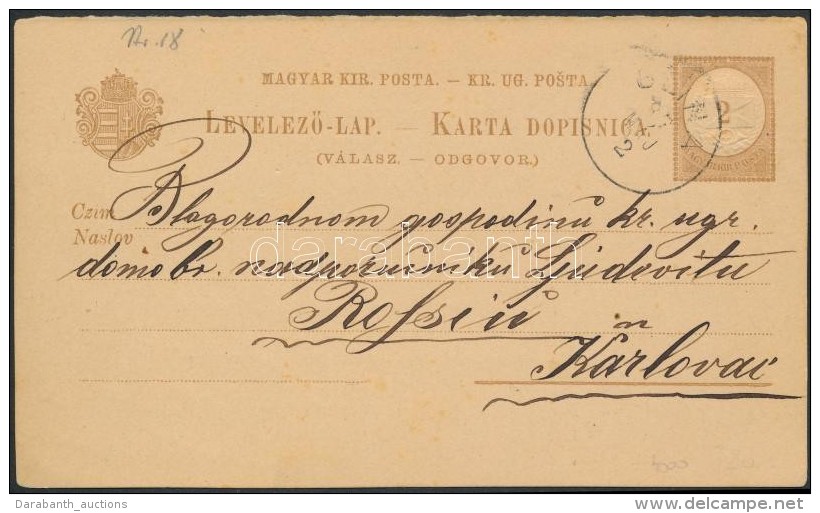 Nr. 18
MAGYAR KIR. POSTA. — KR. UG. POŠTA.
LEVELEZŐ-LAP. — KARTA DOPISNICA.
(VÁLASZ. — ODGOVOR.)
2
MAGY. KIR. POSTA
Czim
Naslov
Blagorodnom gospodinu kr. ugr.
domobr. nadporučniku Ljudevitu
Rossiu
u
Karlovac
darabanth
Darabanth_auctions
www.delcampe.net